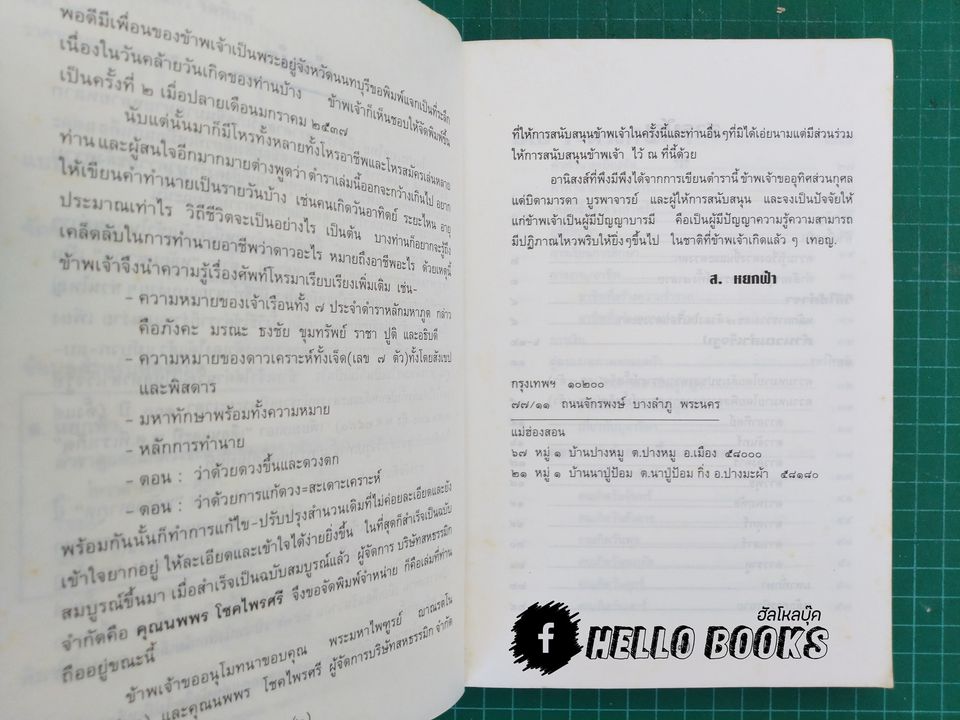 พอดีมีเพื่อนของข้าพเจ้าเป็นพระอยู่จังหวัดนนทบุรีขอพิมพ์แจกเป็นที่ระลึก
เนื่องในวันคล้ายวันเกิดของท่านบ้าง ข้าพเจ้าก็เห็นชอบให้จัดพิมพ์ขึ้น
เป็นครั้งที่ ๒ เมื่อปลายเดือนมกราคม ๒๕๓๗
นับแต่นั้นมาก็มีโหรทั้งหลายทั้งโหรอาชีพและโหรสมัครเล่นหลาย
ท่าน และผู้สนใจอีกมากมายต่างพูดว่า ตำราเล่มนี้ออกจะกว้างเกินไป อยาก
ให้เขียนคำทำนายเป็นรายวันบ้าง เช่นคนเกิดวันอาทิตย์ ระยะไหน อายุ
ประมาณเท่าไร วิถีชีวิตจะเป็นอย่างไร เป็นต้น บางท่านก็อยากจะรู้ถึง
เคล็ดลับในการทำนายอาชีพว่าดาวอะไร หมายถึงอาชีพอะไร ด้วยเหตุนี้
ข้าพเจ้าจึงนำความรู้เรื่องศัพท์โหรมาเรียบเรียงเพิ่มเติม เช่น-
- ความหมายของเจ้าเรือนทั้ง ๗ ประจำตำราหลักมหาภูต กล่าว
คือภังคะ มรณะ ธงชัย ขุมทรัพย์ ราชา ปูติ และอธิบดี
- ความหมายของดาวเคราะห์ทั้งเจ็ด(เลข ๗ ตัว)ทั้งโดยสังเขป
และพิสดาร
- มหาทักษาพร้อมทั้งความหมาย
- หลักการทำนาย
- ตอน : ว่าด้วยดวงขึ้นและดวงตก
- ตอน : ว่าด้วยการแก้ดวง=สะเดาะเคราะห์
พร้อมกันนั้นก็ทำการแก้ไข-ปรับปรุงสำนวนเดิมที่ไม่ค่อยละเอียดและยัง
เข้าใจยากอยู่ ให้ละเอียดและเข้าใจได้ง่ายยิ่งขึ้น ในที่สุดก็สำเร็จเป็นฉบับ
สมบูรณ์ขึ้นมา เมื่อสำเร็จเป็นฉบับสมบูรณ์แล้ว ผู้จัดการ บริษัทสหธรรมิก
จำกัดคือ คุณนพพร โชคไพรศรี จึงขอจัดพิมพ์จำหน่าย ก็คือเล่มที่ท่าน
ถืออยู่ขณะนี้
ข้าพเจ้าขออนุโมทนาขอบคุณ พระมหาไพฑูรย์ ญาณรตโน
และคุณนพพร โชคไพรศรี ผู้จัดการบริษัทสหธรรมิก จำกัด
ที่ให้การสนับสนุนข้าพเจ้าในครั้งนี้และท่านอื่นๆที่มิได้เอ่ยนามแต่มีส่วนร่วม
ให้การสนับสนุนข้าพเจ้า ไว้ ณ ที่นี้ด้วย
อานิสงส์ที่พึงมีพึงได้จากการเขียนตำรานี้ ข้าพเจ้าขออุทิศส่วนกุศล
แด่บิดามารดา บูรพาจารย์ และผู้ให้การสนับสนุน และจงเป็นปัจจัยให้
แก่ข้าพเจ้าเป็นผู้มีปัญญาบารมี คือเป็นผู้มีปัญญาความรู้ความสามารถ
มีปฏิภาณไหวพริบให้ยิ่งๆขึ้นไป ในชาติที่ข้าพเจ้าเกิดแล้ว ๆ เทอญ.
ส. หยกฟ้า
กรุงเทพฯ ๑๐๒๐๐
๗๗/๑๑ ถนนจักรพงษ์ บางลำภู พระนคร
แม่ฮ่องสอน
๖๗ หมู่ ๑ บ้านปางหมู ต.ปางหมู อ.เมือง ๕๘๐๐๐
๒๑ หมู่ ๑ บ้านนาปู่ป้อม ต.นาปู่ป้อม กิ่ง อ.ปางมะผ้า ๕๘๑๕๐
ฮัลโหลบุ๊ค
f HELLO BOOKS